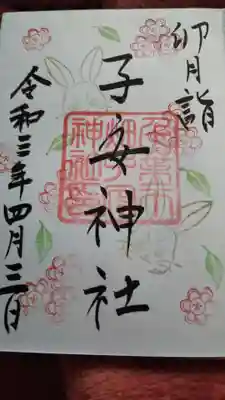 卯月詣
子安神社
令和三年四月三日